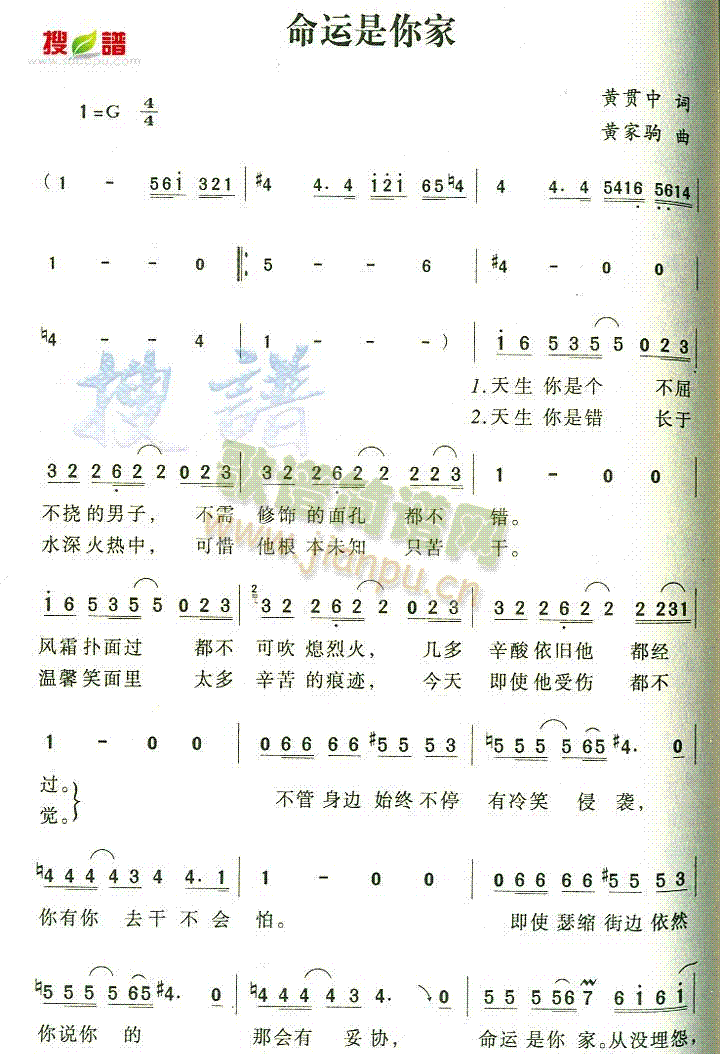 搜谱
www.sooopu.com
命运是你家
1=G 4/4
黄贯中 词
黄家驹 曲
(1 - 561 321 | #4 4. 4 121 65♮4 | 4 4. 4 5416 5614 |
1 - - 0 ‖: 5 - - 6 | #4 - 0 0 |
♮4 - - 4 | 1 - - - ) | 1 6 5 3 5 5 5 0 2 3 |
1.天生 你是个 不屈
2.天生 你是错 长于
3 2 2 6 2 2 2 0 2 3 | 3 2 2 6 2 2 2 2 2 3 | 1 - 0 0 |
不挠的男子， 不需 修饰的面孔 都不 错。
水深火热中， 可惜 他根本未知 只苦 干。
1 6 5 3 5 5 5 0 2 3 | 2 3 2 2 6 2 2 2 0 2 3 | 3 2 2 6 2 2 2 2 231 |
风霜扑面过 都不 可吹熄烈火， 几多 辛酸依旧他 都经
温馨笑面里 太多 辛苦的痕迹， 今天 即使他受伤 都不
1 - 0 0 | 0 6 6 6 6 6 #5 5 5 5 3 | ♮5 5 5 5 5 65 #4. 0 |
过。
不管身边始终不停 有冷笑 侵 袭，
觉。
♮4 4 4 4 3 4 4. 1 | 1 - 0 0 | 0 6 6 6 6 6 #5 5 5 5 3 |
你有你 去干不会 怕。 即使瑟缩街边依然
♮5 5 5 5 65 #4. 0 | ♮4 4 4 4 3 4 4. 0 | 5 5 5 56 7 6 1 6 1 |
你说你 的 那会有 妥协， 命运是你 家。从没埋怨，
搜谱
歌谱简谱网
www.jianpu.cn